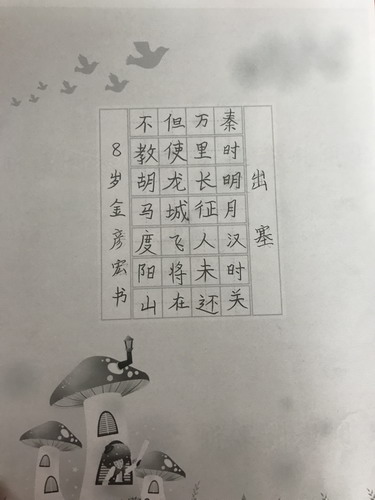 出塞
秦时明月汉时关
万里长征人未还
但使龙城飞将在
不教胡马度阳山
8岁金彦宏书